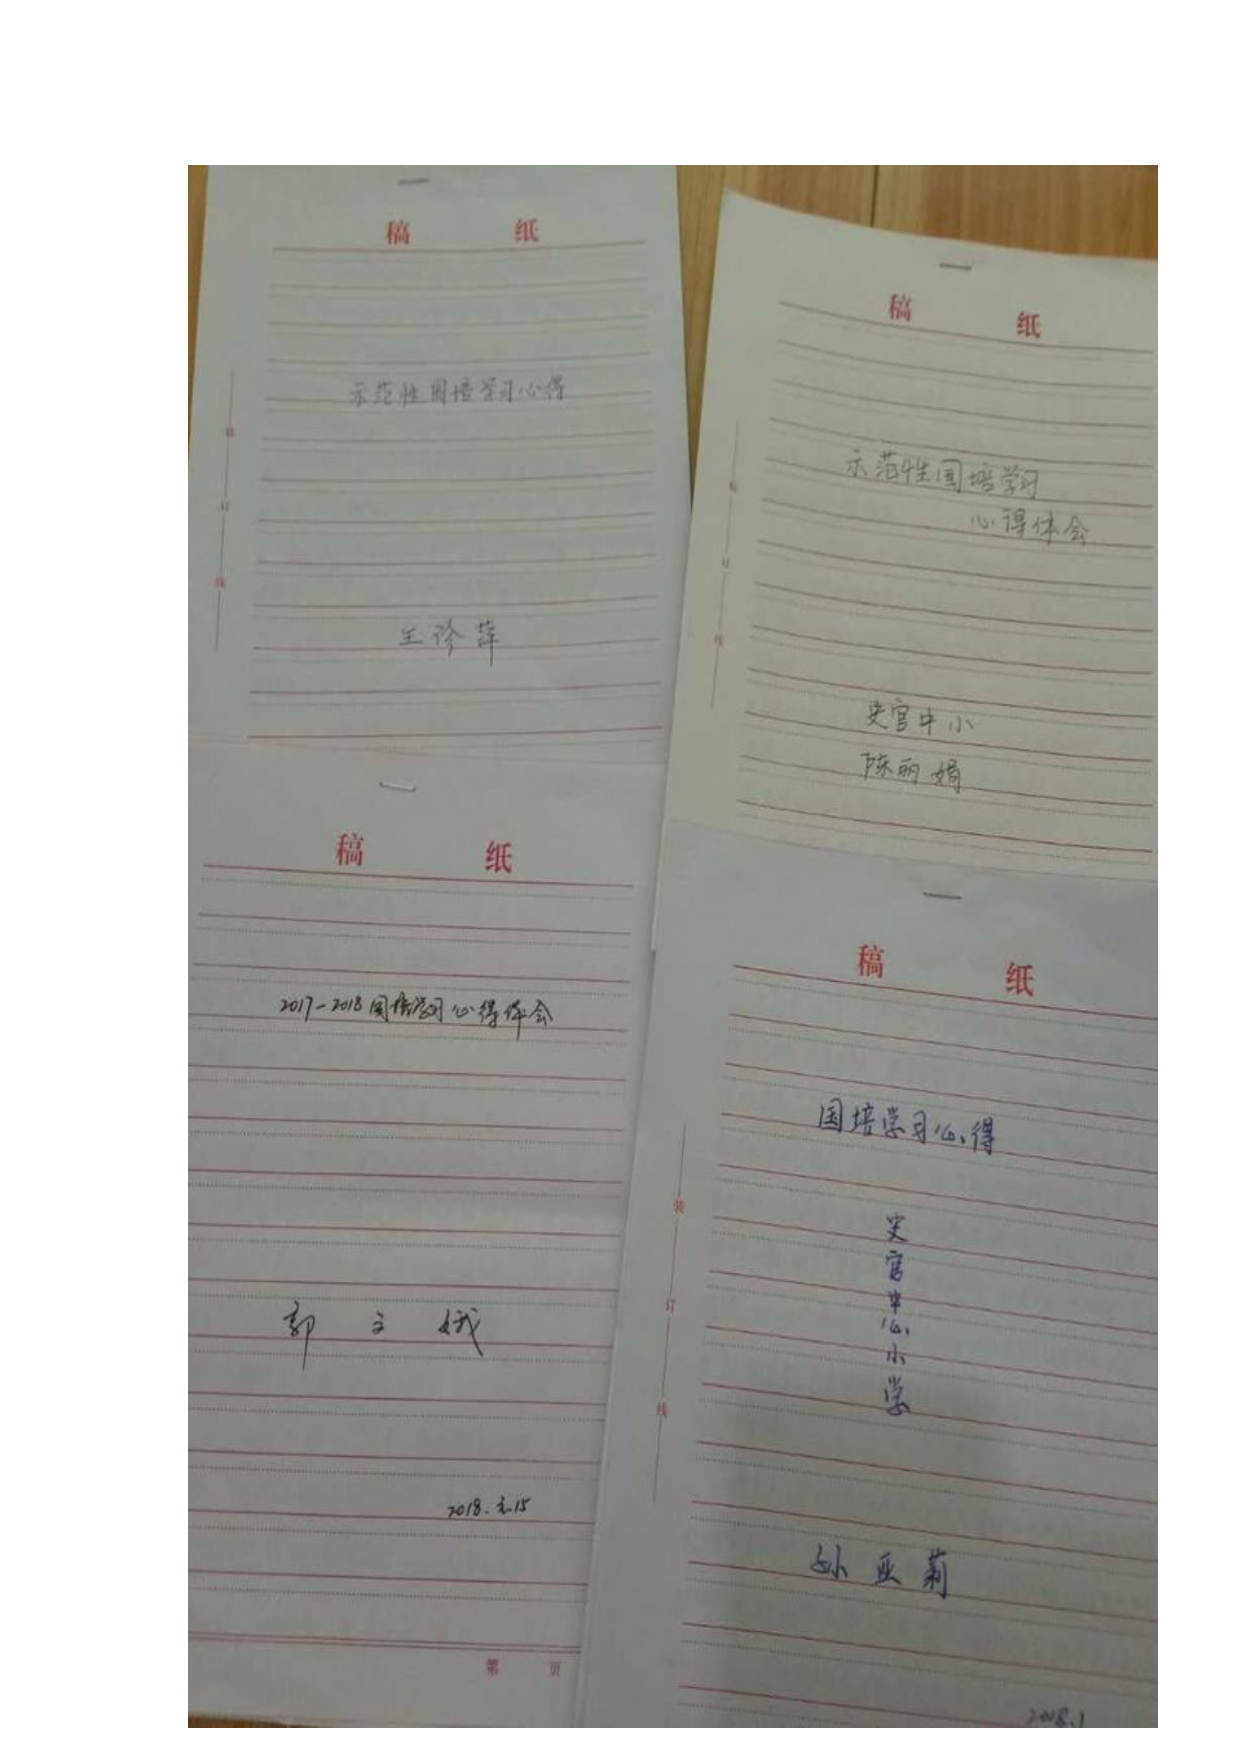 稿 纸
示范性国培学习心得
装
订
线
王珍萍
稿 纸
示范性国培学习
心得体会
装
订
线
史官中小
陈丽娟
稿 纸
2017-2018国培学习心得体会
郭文娥
2018.2.15
第 页
稿 纸
国培学习心得
史
官
中
心
小
学
装
订
线
孙亚莉
2018.1